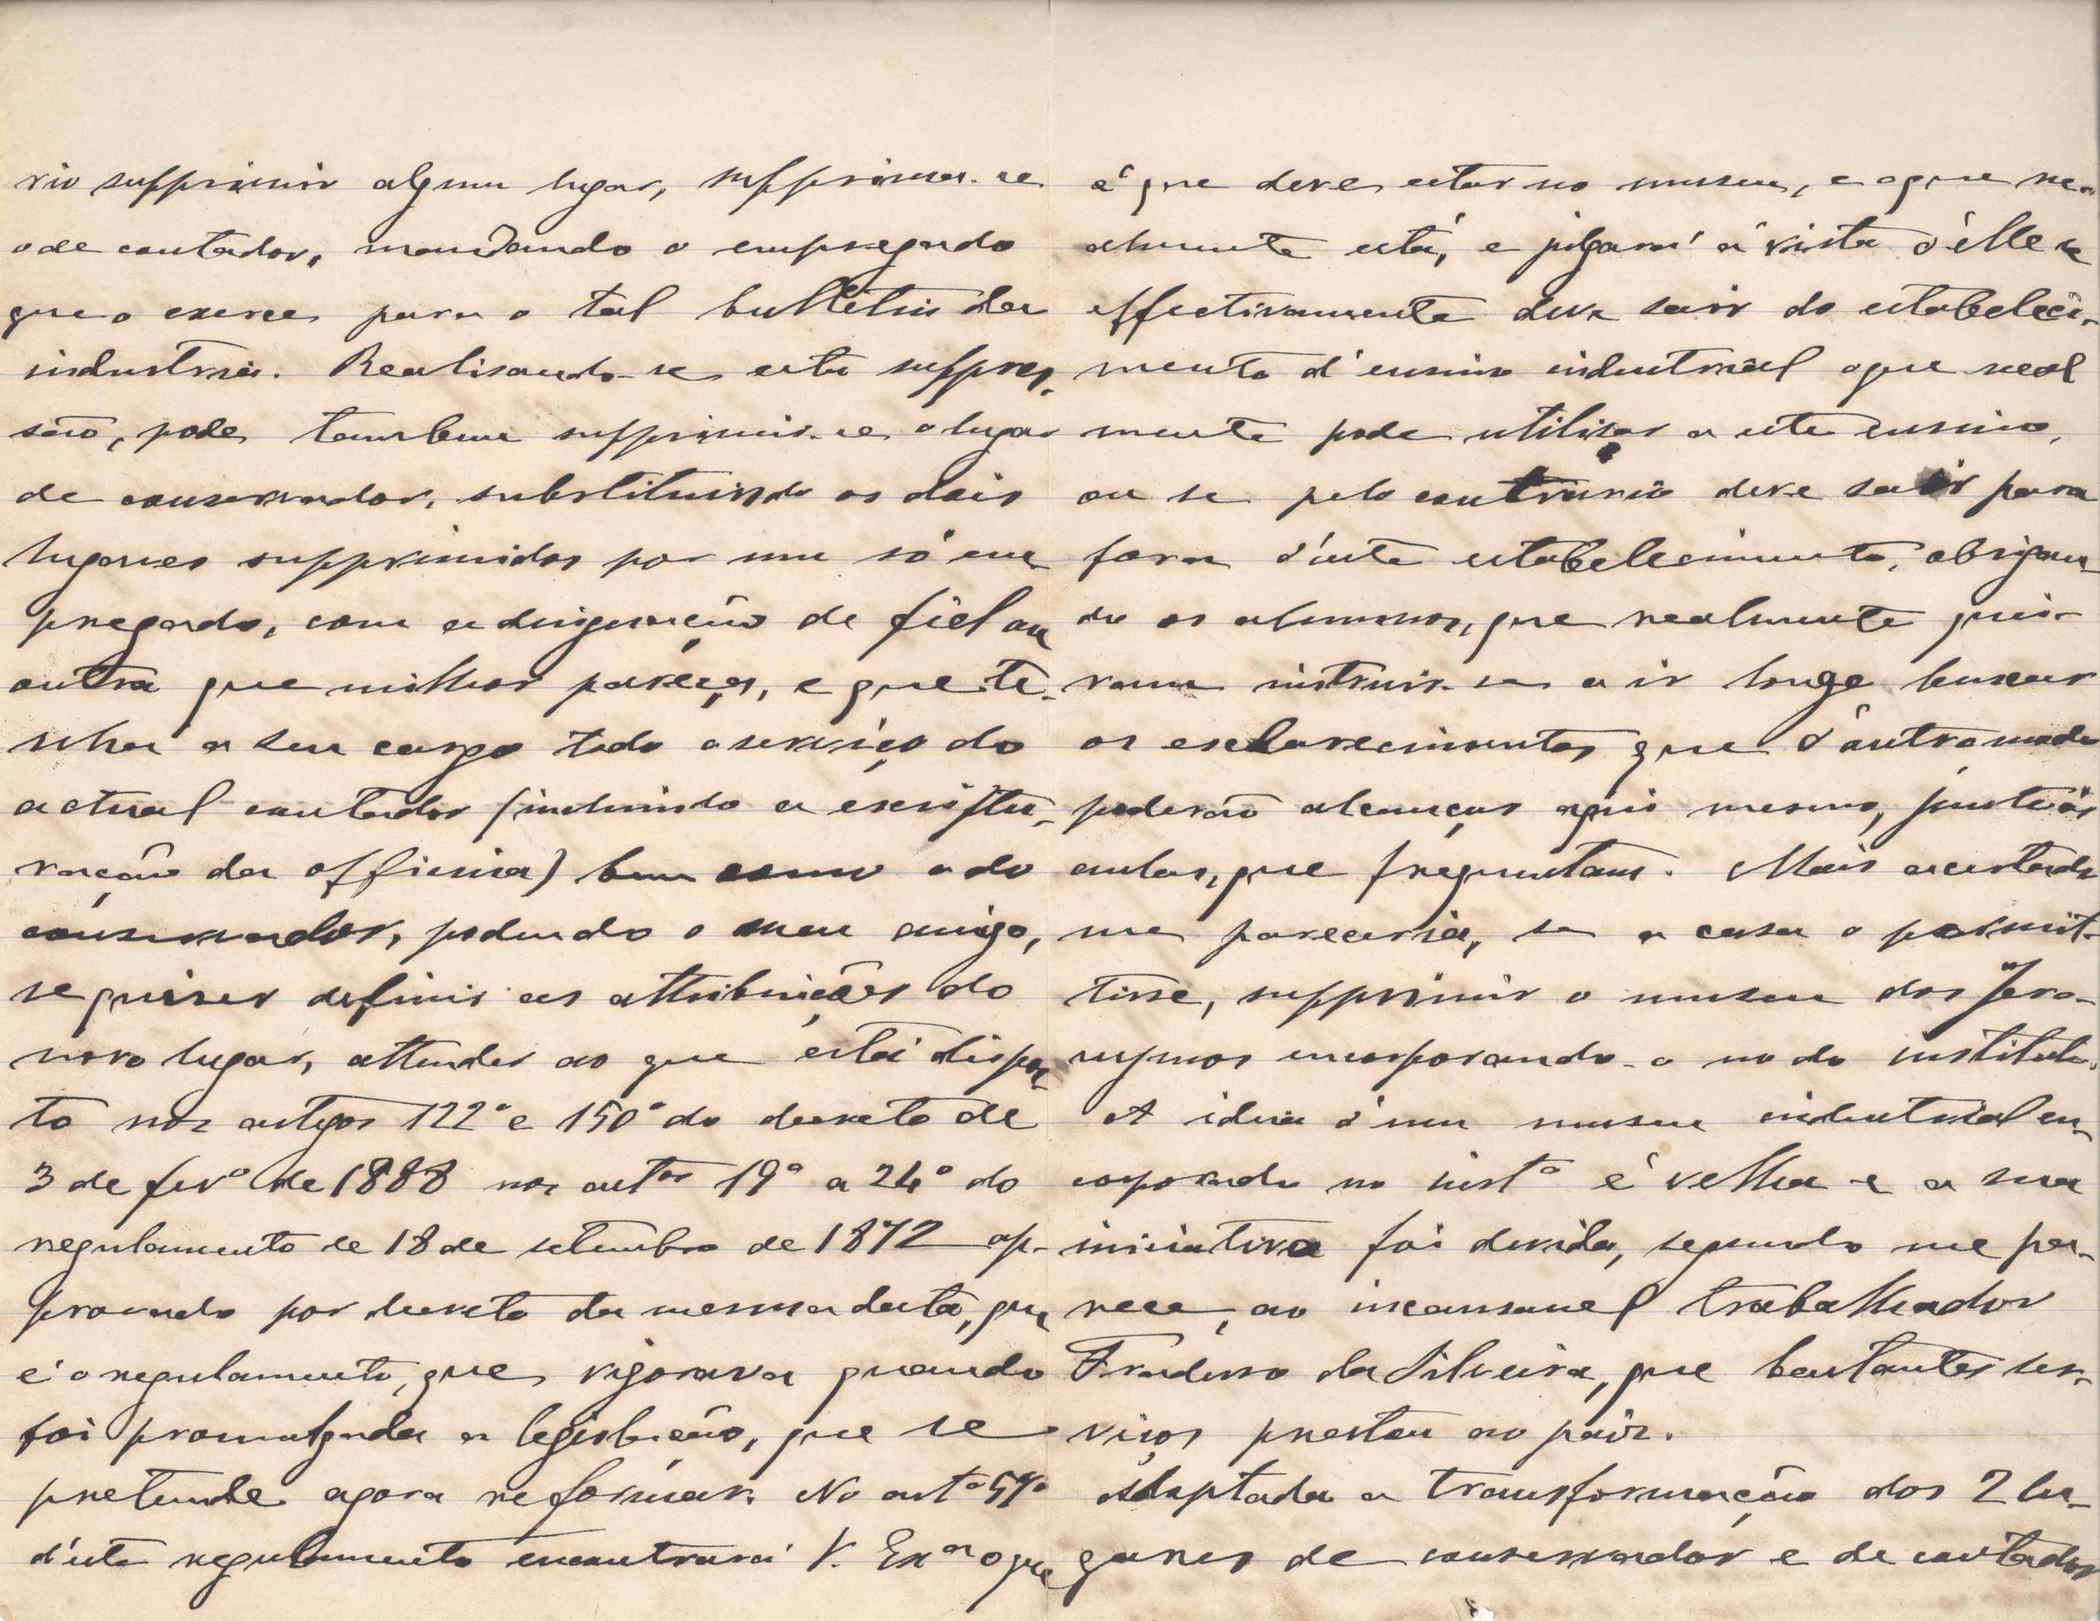 rio supprimir algum lugar, supprima-se
o de contador, mandando o empregado
que o exerce para o tal bulletin da
industria. Realisando-se esta suppres-
são, pode tambem supprimir-se o lugar
de conservador, substituindo os dois
lugares supprimidos por um só em
pregado, com a designação de fiel ou
outra que milhor pareça, e que te-
nha a seu cargo todo o serviço do
actual contador (incluindo a escriptu-
ração da officina) bem como o do
conservador, podendo o meu amigo,
se quizer definir as attribuições do
novo lugar, attender ao que está dispos-
to nos artigos 122º e 150º do decreto de
3 de fevº de 1888 nos artos 19º a 24º do
regulamento de 18 de setembro de 1872 ap-
provado por decreto da mesma data, que
é o regulamento, que vigorava quando
foi promulgada a legislação, que se
pretende agora reformar. No artº 57º
d'este regulamento encontrará V. Exª o que
é que deve estar no museu, e o que re-
almente está, e julgará á vista d'elle se
effectivamente deve sair do estabeleci-
mento d'ensino industrial o que real
mente pode utilisar a este ensino,
ou se pelo contrario deve sair para
fora d'este estabelecimento, obrigan-
do os alumnos, que realmente quei-
ram instruir-se a ir longe buscar
os esclarecimentos que d'outro modo
poderão alcançar aqui mesmo, junto ás
aulas, que frequentam. Mais acertado
me pareceria, se a casa o permit-
tisse, supprimir o museu dos Jero-
nymos encorporando-o no do instituto.
A idea d'um museu industrial en-
corporado no instº é velha e a sua
iniciativa foi devida, segundo me pa-
rece, ao incansavel trabalhador
Fradesso da Silveira, que bastantes ser-
viços prestou ao paiz.
Adaptada a transformação dos 2 lu-
gares de conservador e de contador